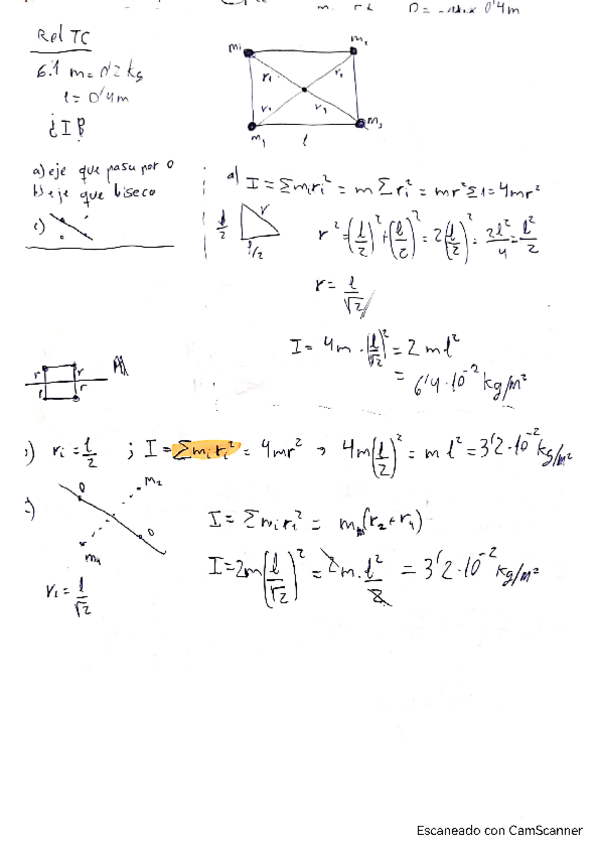 m. D= 0'4m
Rel TC
6.1 m=0'2 kg
l=0'4m
¿I?
m₁ m₂
r₁ r₂
r₄ r₃
m₃
l
a) eje que pasa por O
b) eje que biseca
c)
a) I = Σmᵢrᵢ² = m Σrᵢ² = mr²Σ1 = 4mr²
l/2 r
l/2
r² = (l/2)² + (l/2)² = 2(l/2)² = 2l²/4 = l²/2
r = l/√2
I = 4m·(l/√2)² = 2ml²
= 6'4·10⁻² kg/m²
r r
r r
) rᵢ = l/2 ; I = Σmᵢrᵢ² = 4mr² → 4m(l/2)² = ml² = 3'2·10⁻² kg/m²
)
0 m₂
0
m₄
rᵢ = l/√2
I = Σmᵢrᵢ² = m(r₂+r₄)
I = 2m(l/√2)² = 2m·l²/2 = 3'2·10⁻² kg/m²
Escaneado con CamScanner